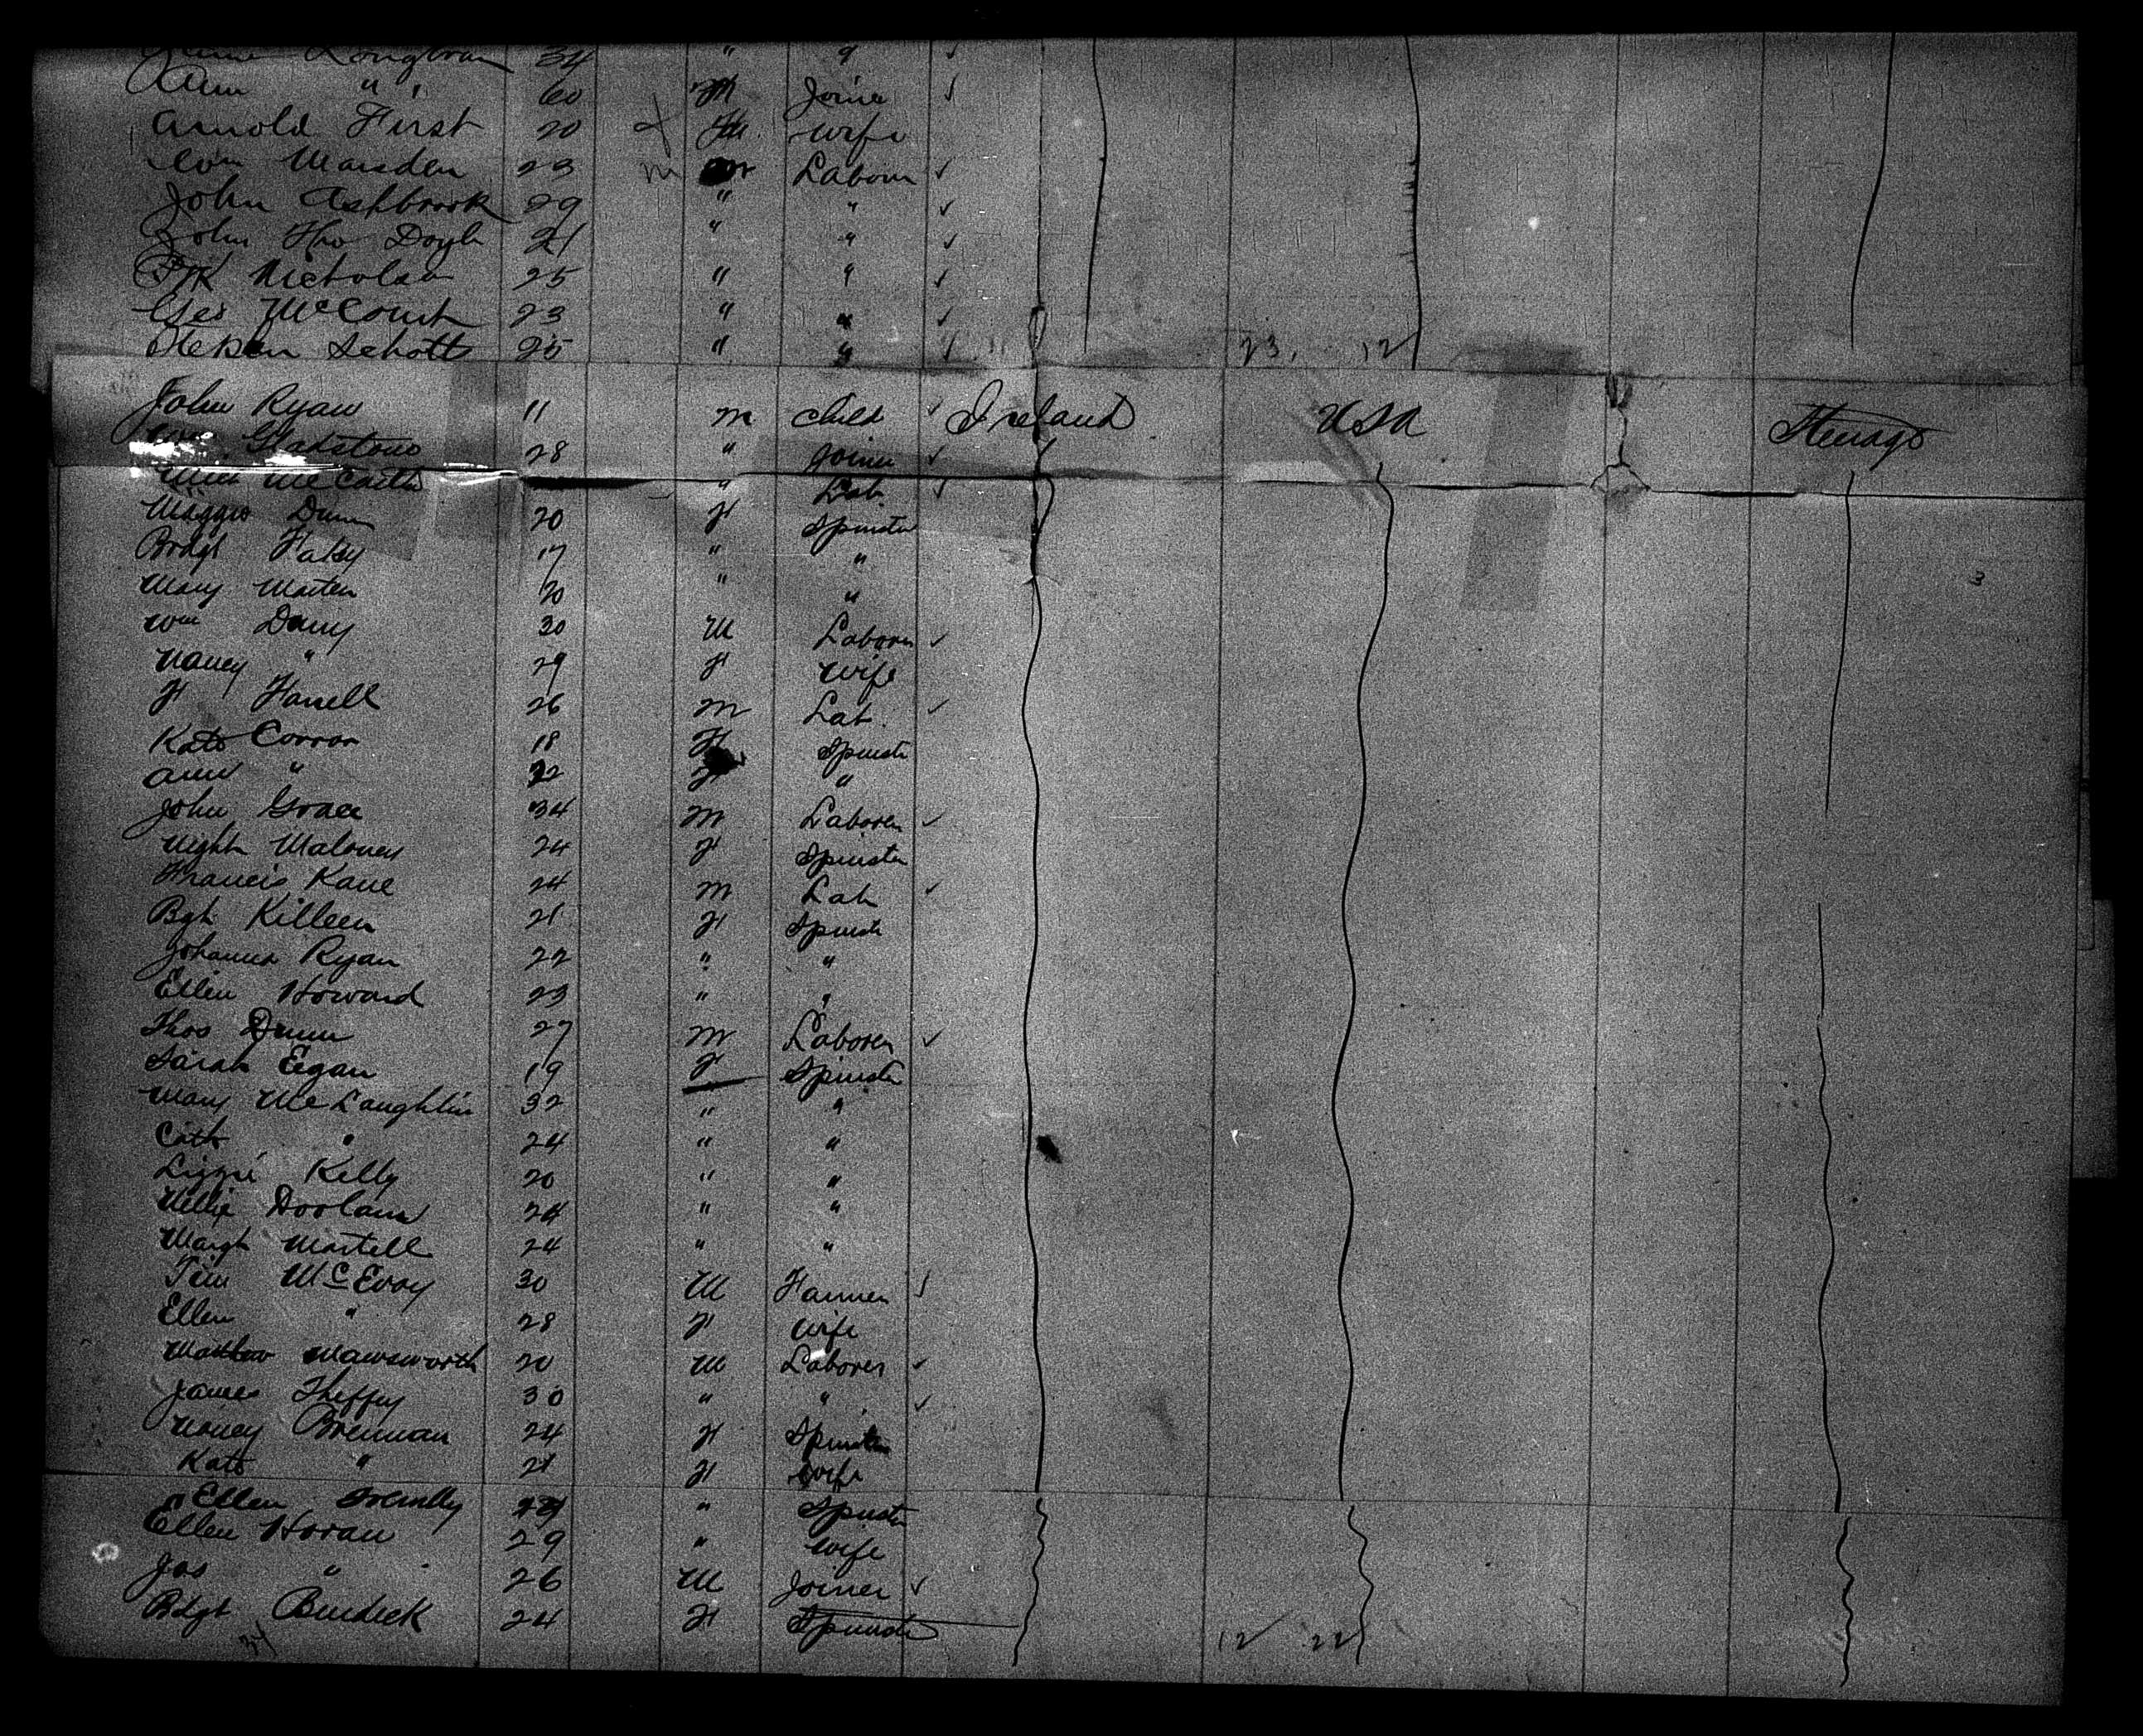 Longbran 34 " "
Ann " 60 M Joiner ✓
Arnold First 20 wife
Wm Marsden 23 m Laborer ✓
John Ashbrook 29 " " ✓
John Tho Doyle 21 " " ✓
Ptk Nicholson 25 " " ✓
Geo McCourt 23 " " ✓
Stephen Schott 25 " " ✓ 23. 12
John Ryan 11 m child ✓ Ireland USA Steerage
Gladstone 28 " Joiner ✓
McCarthy " Lab ✓
Maggie Dunn 20 F Spinster
Brdgt Fahy 17 " "
Mary Marten 20 " " 3
Wm Darcy 30 M Laborer ✓
Nancy " 29 F Wife
F Farrell 26 M Lab. ✓
Kate Corran 18 F Spinster
Ann " 22 F "
John Grace 34 M Laborer ✓
Maloney 24 F Spinster
Francis Kane 24 m Lab ✓
Bgt Killeen 21 F Spinster
Johanna Ryan 22 " "
Ellen Howard 23 " "
Thos Dunn 27 M Laborer ✓
Sarah Egan 19 F Spinster
Mary McLaughlin 32 " "
Cath " 24 " "
Lizzie Kelly 20 " "
Nellie Doolan 24 " "
Margt Martell 24 " "
Tim McEvoy 30 M Farmer ✓
Ellen " 28 F Wife
Mawsworth 20 M Laborer ✓
James Sheffey 30 " " ✓
Nancy Brennan 24 F Spinster
Kate " 21 F Wife
Ellen " Spinster
Ellen Horan 29 " Wife
Jas " 26 M Joiner ✓
Bdgt Burdick 24 F Spinster
34 12 22